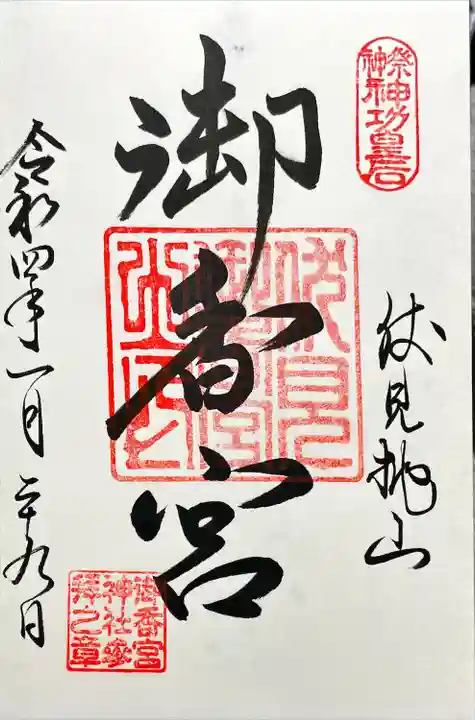 祭神
神功皇后
伏見桃山
御香宮
令和四年一月二十九日
御香宮
神社参
拝之章